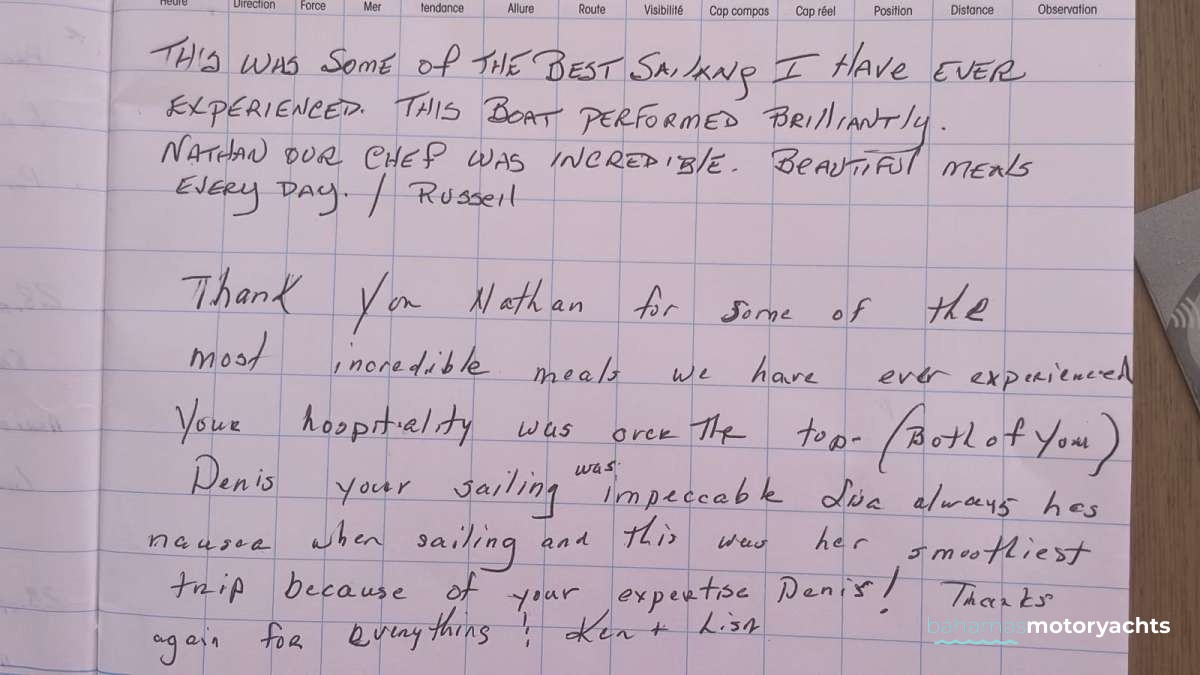 Heure Direction Force Mer tendance Allure Route Visibilité Cap compas Cap réel Position Distance Observation
THIS WAS SOME of THE BEST SAILING I HAVE EVER
EXPERIENCED. THIS BOAT PERFORMED BRILLIANTLY.
NATHAN OUR CHEF WAS INCREDIBLE. BEAUTIFUL MEALS
EVERY DAY. / RUSSELL
Thank You Nathan for some of the
most incredible meals we have ever experienced
Your hospitality was over the top- (Both of You)
Denis your sailing was impeccable Lisa always has
nausea when sailing and this was her smoothiest
trip because of your expertise Denis! Thanks
again for Everything! Ken + Lisa
bahamasmotoryachts